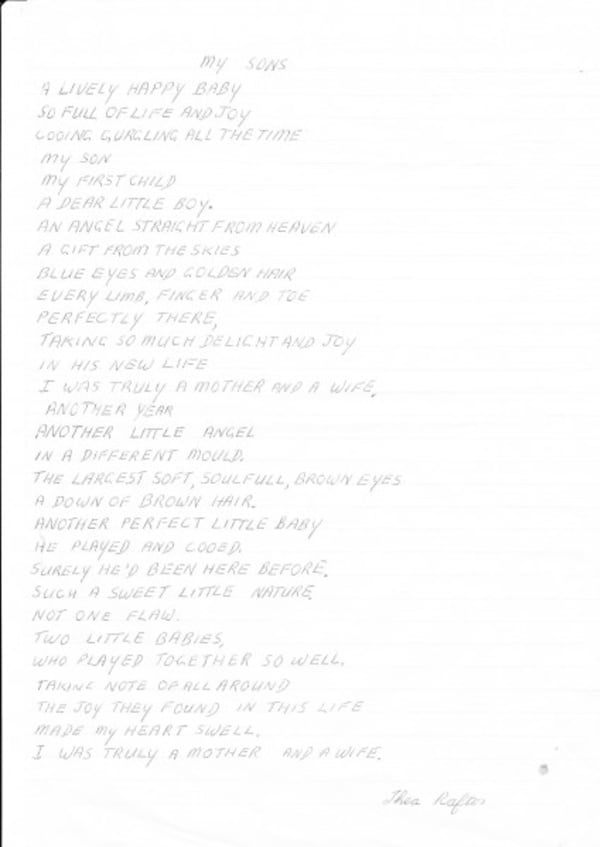 MY SONS
A LIVELY HAPPY BABY
SO FULL OF LIFE AND JOY
COOING GURGLING ALL THE TIME
MY SON
MY FIRST CHILD
A DEAR LITTLE BOY.
AN ANGEL STRAIGHT FROM HEAVEN
A GIFT FROM THE SKIES
BLUE EYES AND GOLDEN HAIR
EVERY LIMB, FINGER AND TOE
PERFECTLY THERE,
TAKING SO MUCH DELIGHT AND JOY
IN HIS NEW LIFE
I WAS TRULY A MOTHER AND A WIFE,
ANOTHER YEAR
ANOTHER LITTLE ANGEL
IN A DIFFERENT MOULD.
THE LARGEST SOFT, SOULFULL, BROWN EYES
A DOWN OF BROWN HAIR.
ANOTHER PERFECT LITTLE BABY
HE PLAYED AND COOED.
SURELY HE'D BEEN HERE BEFORE,
SUCH A SWEET LITTLE NATURE,
NOT ONE FLAW.
TWO LITTLE BABIES,
WHO PLAYED TOGETHER SO WELL.
TAKING NOTE OF ALL AROUND
THE JOY THEY FOUND IN THIS LIFE
MADE MY HEART SWELL.
I WAS TRULY A MOTHER AND A WIFE.
Thea